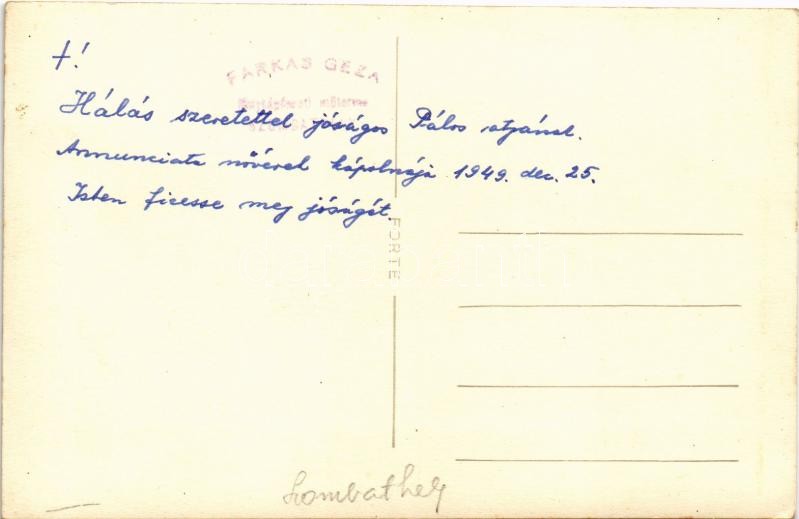 +!
FARKAS GÉZA
műterme
Hálás szeretettel jóságos Pálos atyának.
Annunciata nővérek kápolnája 1949. dec. 25.
Isten fizesse meg jóságát.
FORTE
Szombathely